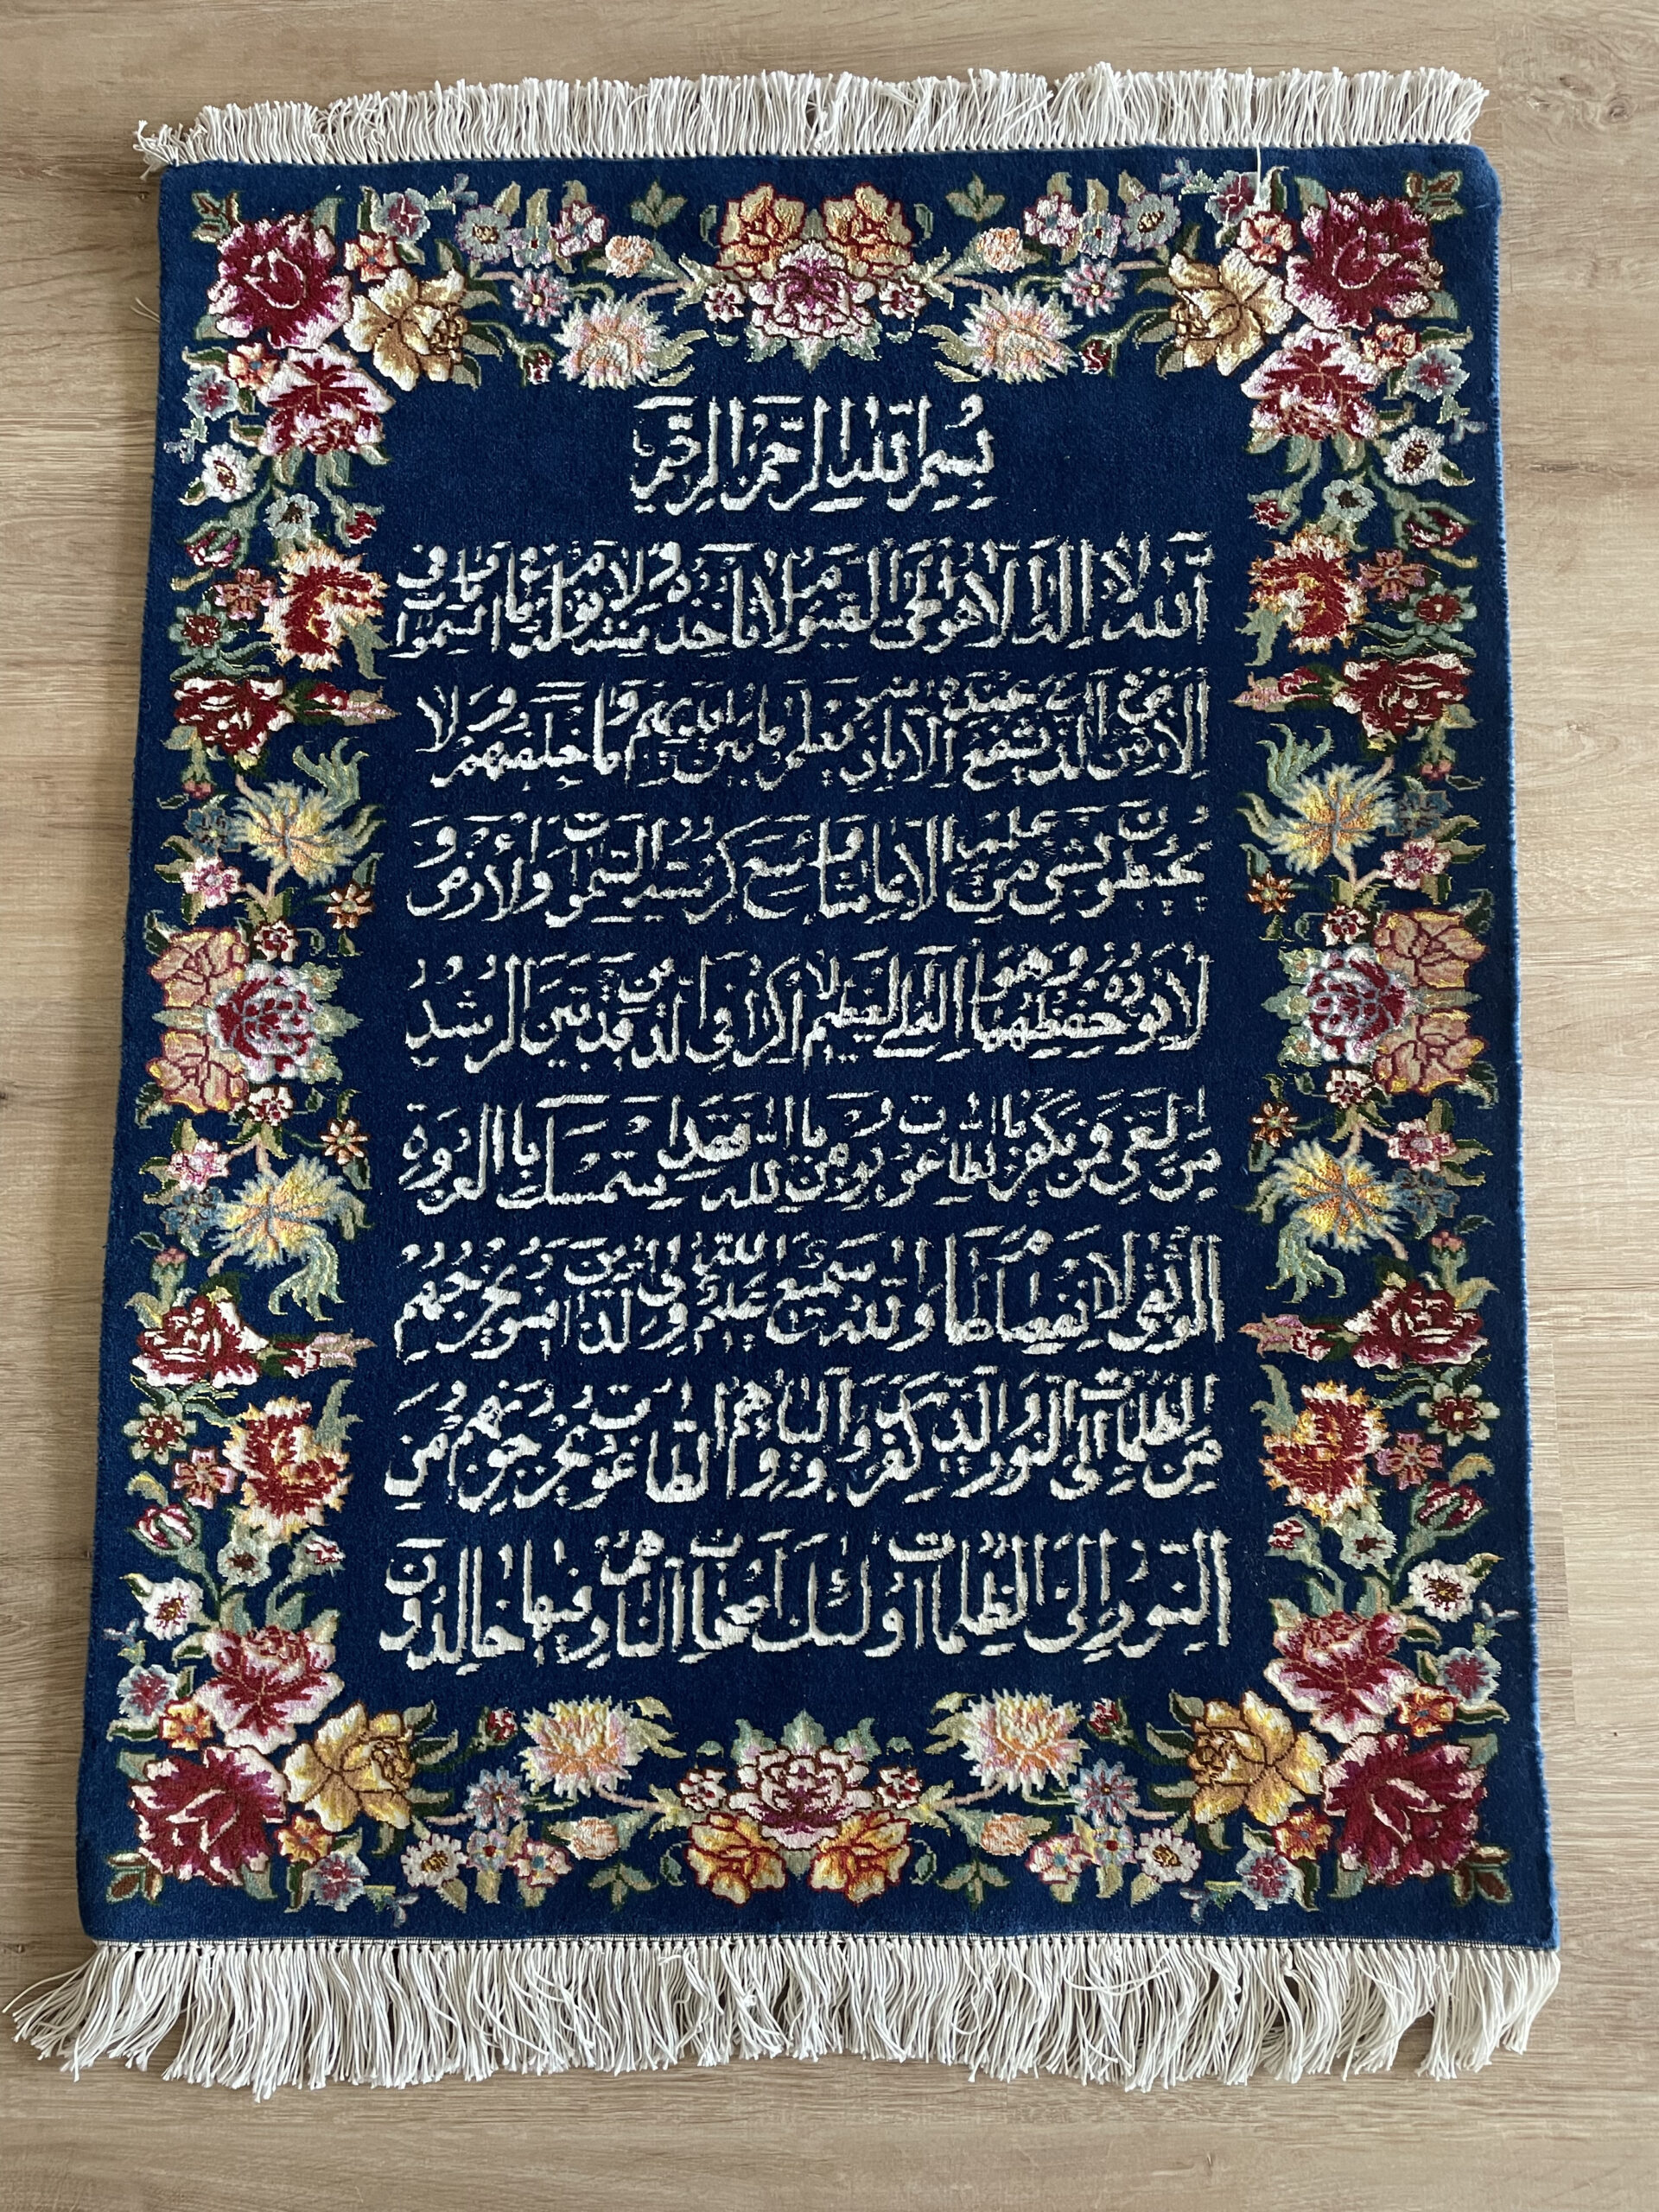 بسم الله الرحمن الرحيم
الله لا اله الا هو الحي القيوم لا تأخذه سنة ولا نوم له ما في السموات وما في
الارض من ذا الذي يشفع عنده الا باذنه يعلم ما بين ايديهم وما خلفهم ولا
يحيطون بشئ من علمه الا بما شاء وسع كرسيه السموات والأرض و
لا يؤده حفظهما وهو العلي العظيم لا اكراه في الدين قد تبين الرشد
من الغي فمن يكفر بالطاغوت ويؤمن بالله فقد استمسك بالعروة
الوثقى لا انفصام لها والله سميع عليم الله ولي الذين امنوا يخرجهم
من الظلمات الى النور والذين كفروا اولياؤهم الطاغوت يخرجونهم من
النور الى الظلمات أولئك أصحاب النار هم فيها خالدون